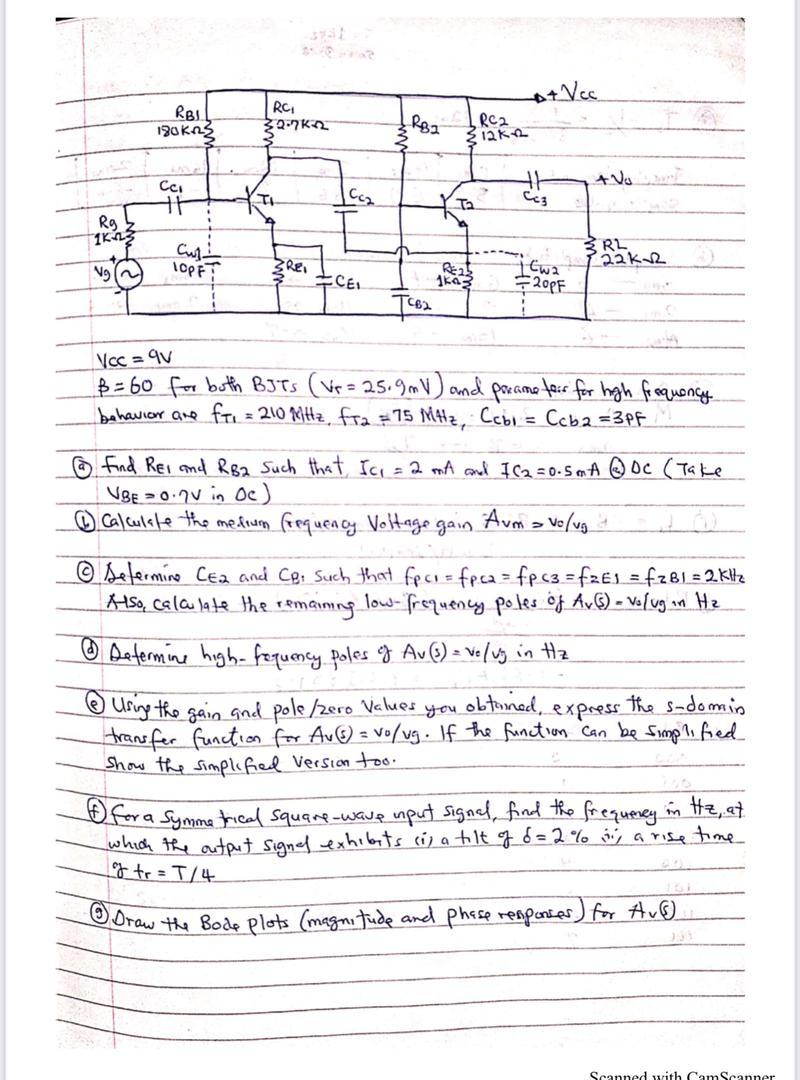 +Vcc
RB1
180KΩ
RC1
2.7KΩ
RB2
RC2
12KΩ
CC1
T1
CC2
T2
CC3
+Vo
Rg
1KΩ
Vg
CW1
10PF
RE1
CE1
RE2
1KΩ
CW2
20PF
RL
22KΩ
CB2
Vcc = 9V
β = 60 for both BJTs (VT = 25.9mV) and parameters for high frequency
behaviour are fT1 = 210 MHz, fT2 = 75 MHz, Ccb1 = Ccb2 = 3PF
ⓐ Find RE1 and RB2 Such that, Ic1 = 2 mA and IC2 = 0.5mA @ DC (Take
VBE = 0.7V in DC)
ⓑ Calculate the medium frequency Voltage gain Avm = vo/vg
ⓒ Determine CE2 and CB1 Such that fpc1 = fpc2 = fpc3 = fzE1 = fzB1 = 2KHz
Also, calculate the remaining low-frequency poles of Av(s) = vo/vg in Hz
ⓓ Determine high-fequency poles of Av(s) = vo/vg in Hz
ⓔ Using the gain and pole/zero Values you obtained, express the s-domain
transfer function for Av(s) = vo/vg. If the function can be simplified
Show the simplified Version too.
ⓕ For a Symmetrical Square-wave input Signal, find the frequency in Hz, at
which the output signal exhibits (i) a tilt of δ = 2% (ii) a rise time
of tr = T/4
ⓖ Draw the Bode plots (magnitude and phase responses) for Av(s)
Scanned with CamScanner